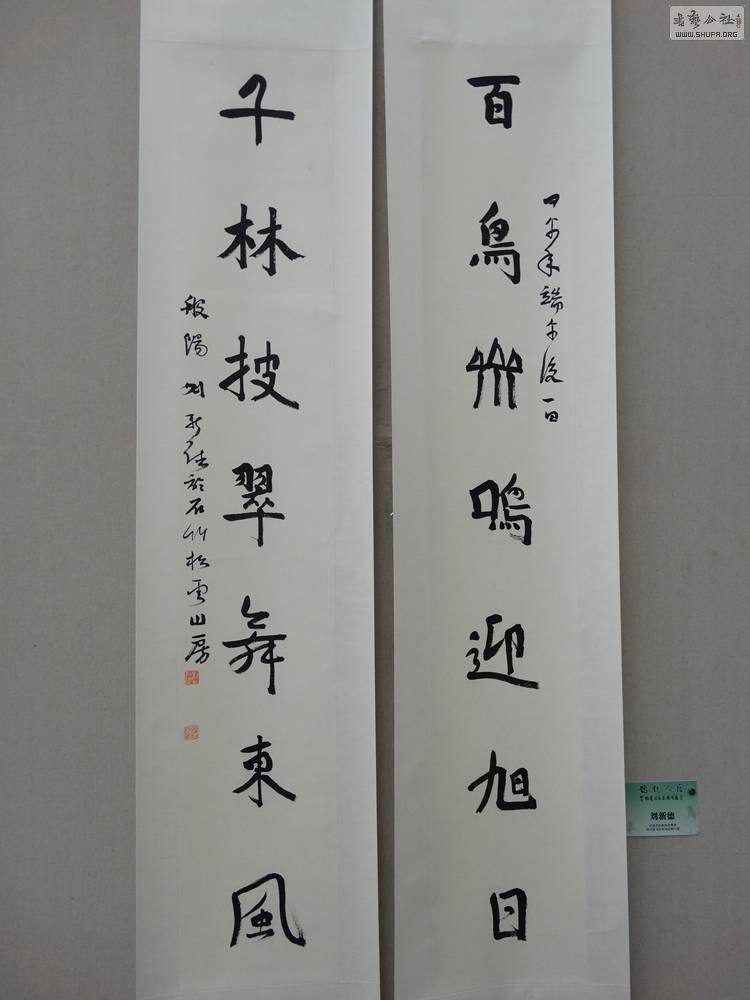 書藝公社
WWW.SHUFA.ORG
百鳥齊鳴迎旭日
甲午年端午後一日
千林披翠舞東風
般陽劉新德於石竹松雲山房
刘新德